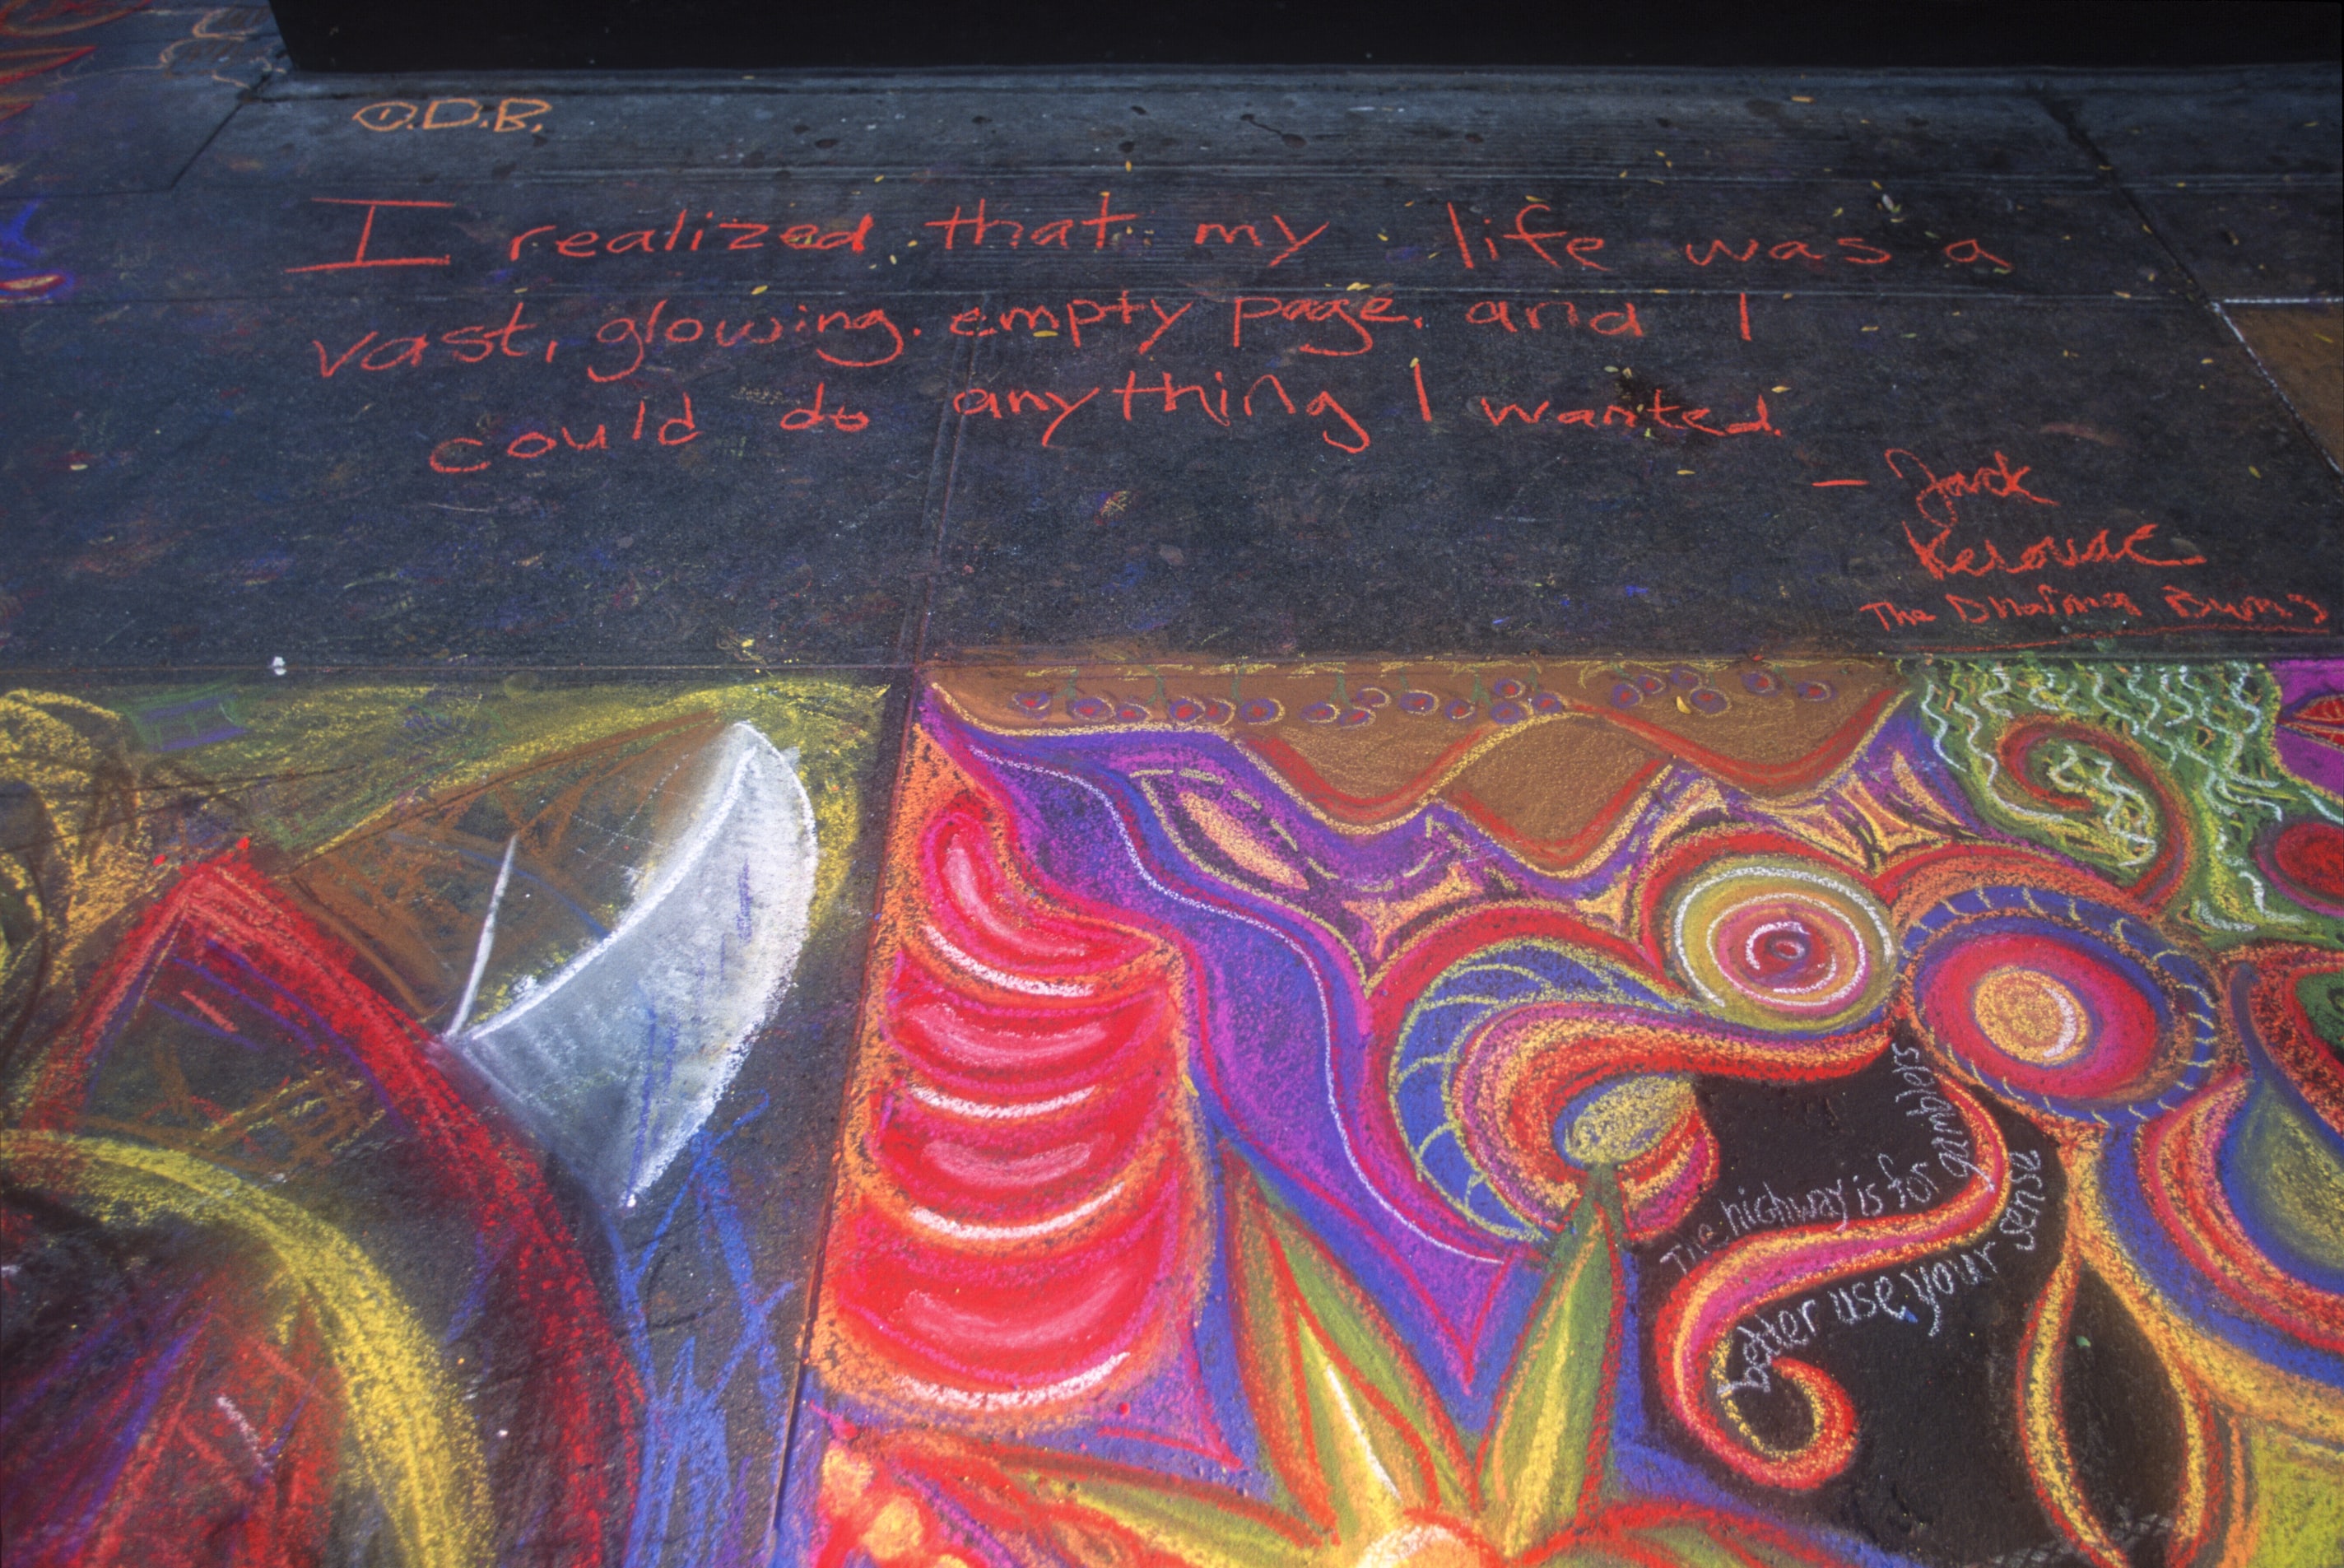 O.D.B.
I realized that my life was a
vast, glowing. empty page, and I
could do anything I wanted.
- Jack
Kerouac
The Dharma Bums
The highway is for gamblers
better use your sense